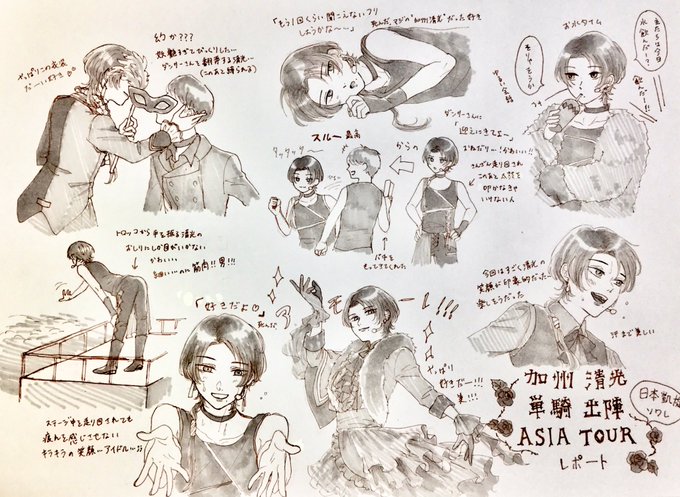 やっぱりこの衣装
だーい好き♡♡
幻か???
妖艶すぎてびっくりした…
ダンサーさんを翻弄する清光…
(このあと縛られる)
「もう1回くらい聞こえないフリ
しようかな〜…」
死んだ、マジの"加州清光"だった好き
お水タイム
主たちは今日
水飲んだー?
飲んだー!!!
そりゃそうか
スルー最高
タッタッ
からの
ダンサーさんに
「迎えにきてよー」
おねだり…!かわいい!!
さんざん走り回され
このあと太鼓を
叩かなきゃ
いけない人
バチを
もってきてくれた
トロッコから手を振る清光の
おしりにしか目がいかない
かわいい
細いぃ…のに筋肉!!男!!!
「好きだよ♡」
死んだ
ステージ中を走り回されても
疲れを感じさせない
キラキラの笑顔…アイドル…
やっぱり
好きだー!!!
美!!!
今回はすごく清光の
笑顔が印象的だった
楽しそうだった
汗まで美しい
加州清光
単騎出陣
ASIA TOUR
レポート
日本凱旋
ソワレ